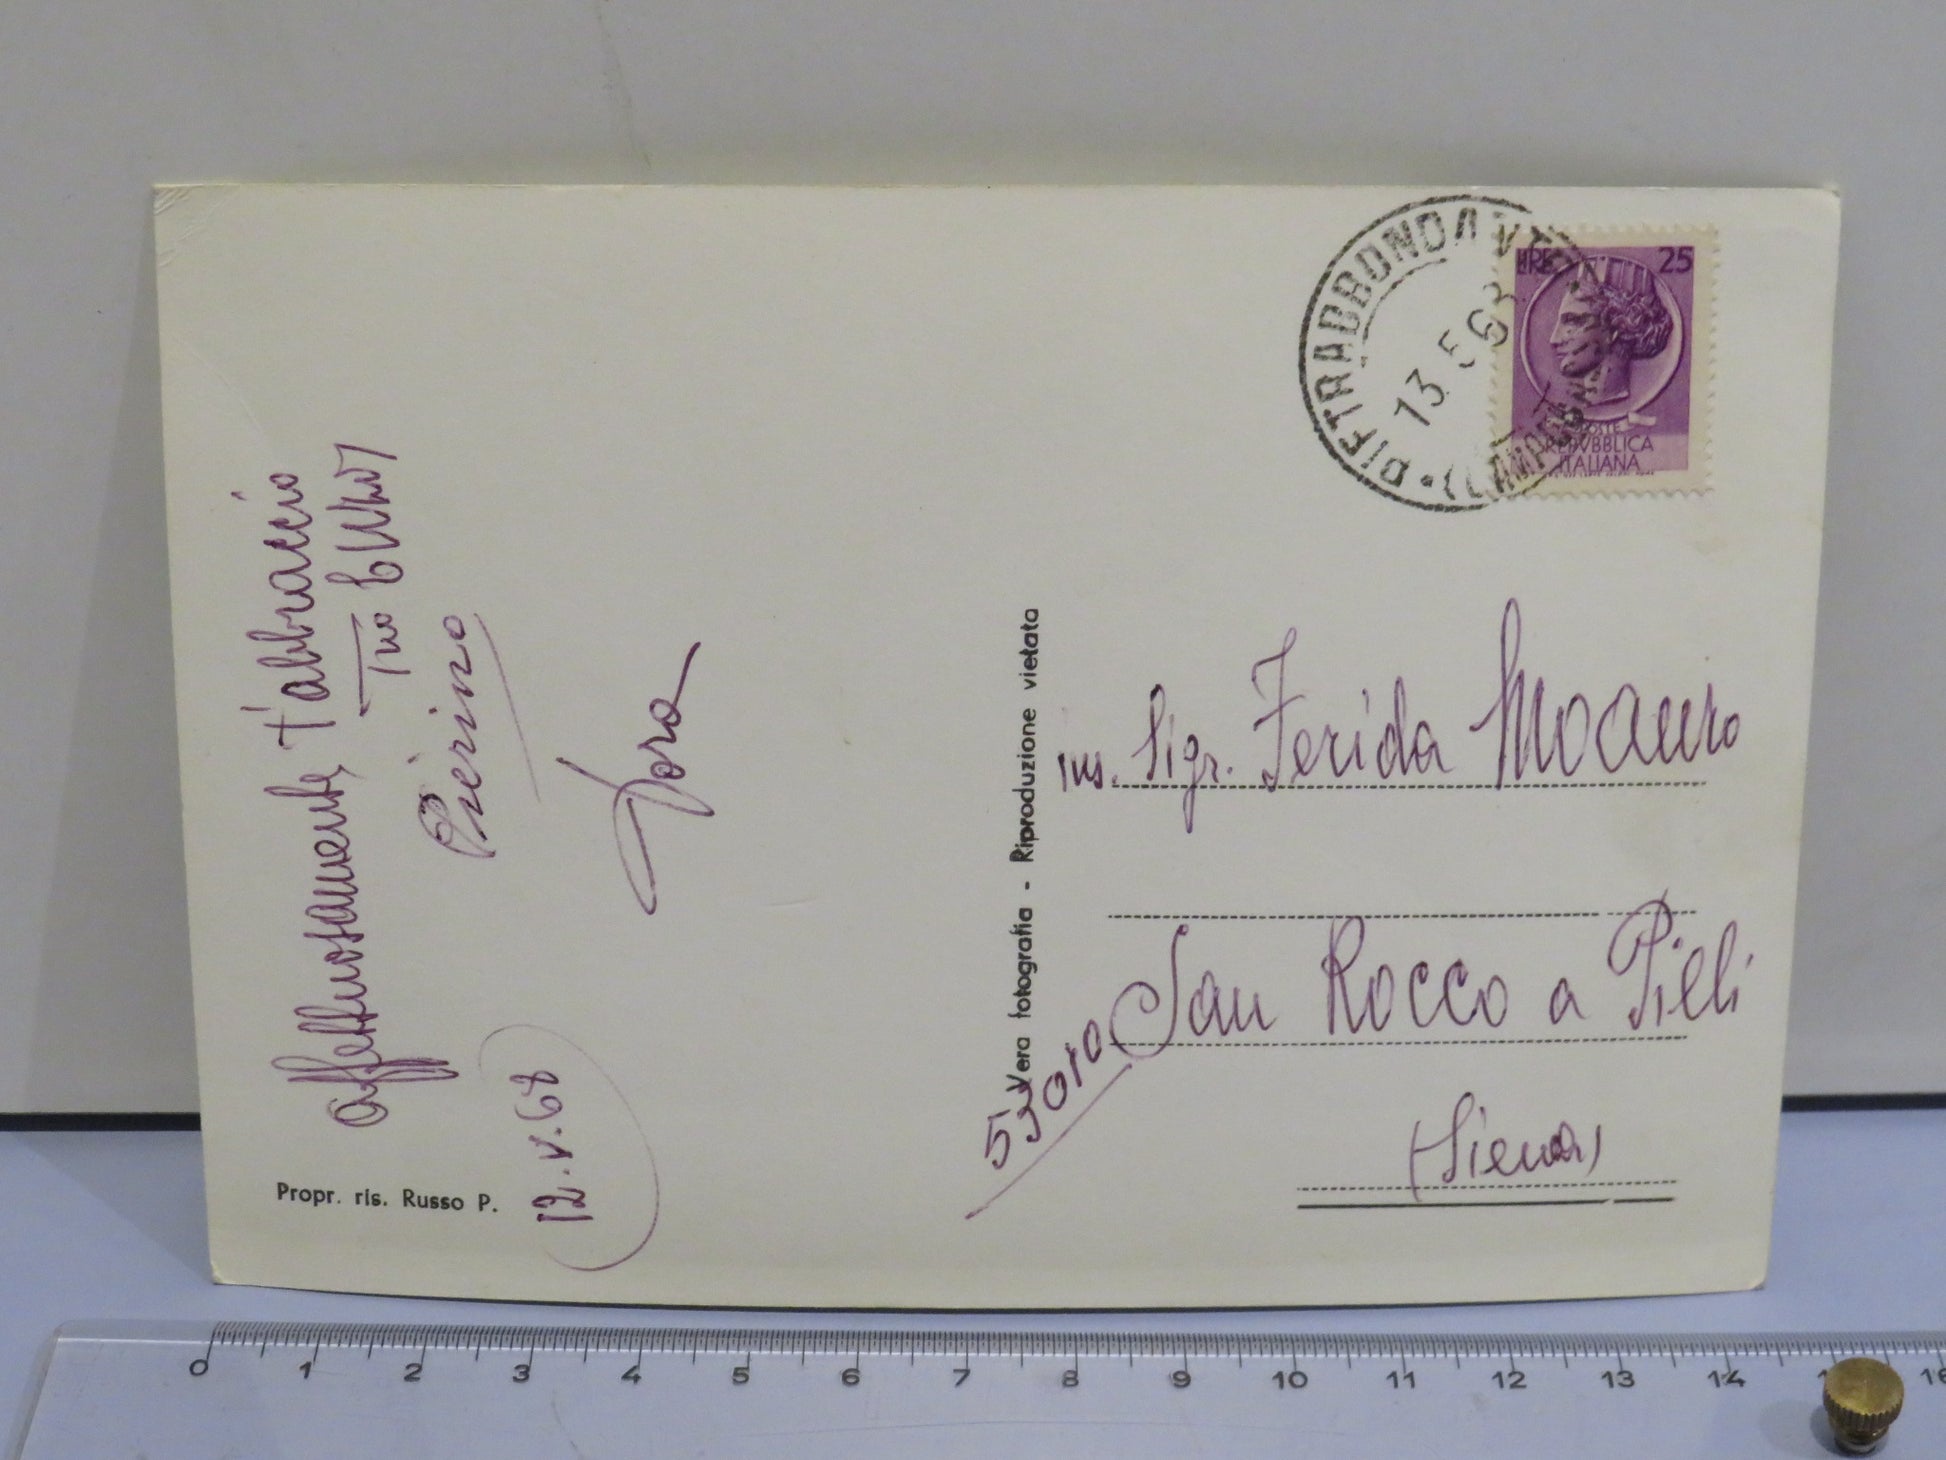 affettuosamente, t'abbraccio
Tuo
Pierino
Dora
12.V.68
Propr. ris. Russo P.
Vera fotografia - Riproduzione vietata
PIETRABBONDANTE
(CAMPOBASSO)
13 5 68
LIRE 25
POSTE
REPVBBLICA
ITALIANA
ins. Sigr. Ferida Moauro
53010 San Rocco a Pilli
(Siena)
0 1 2 3 4 5 6 7 8 9 10 11 12 13 14 16